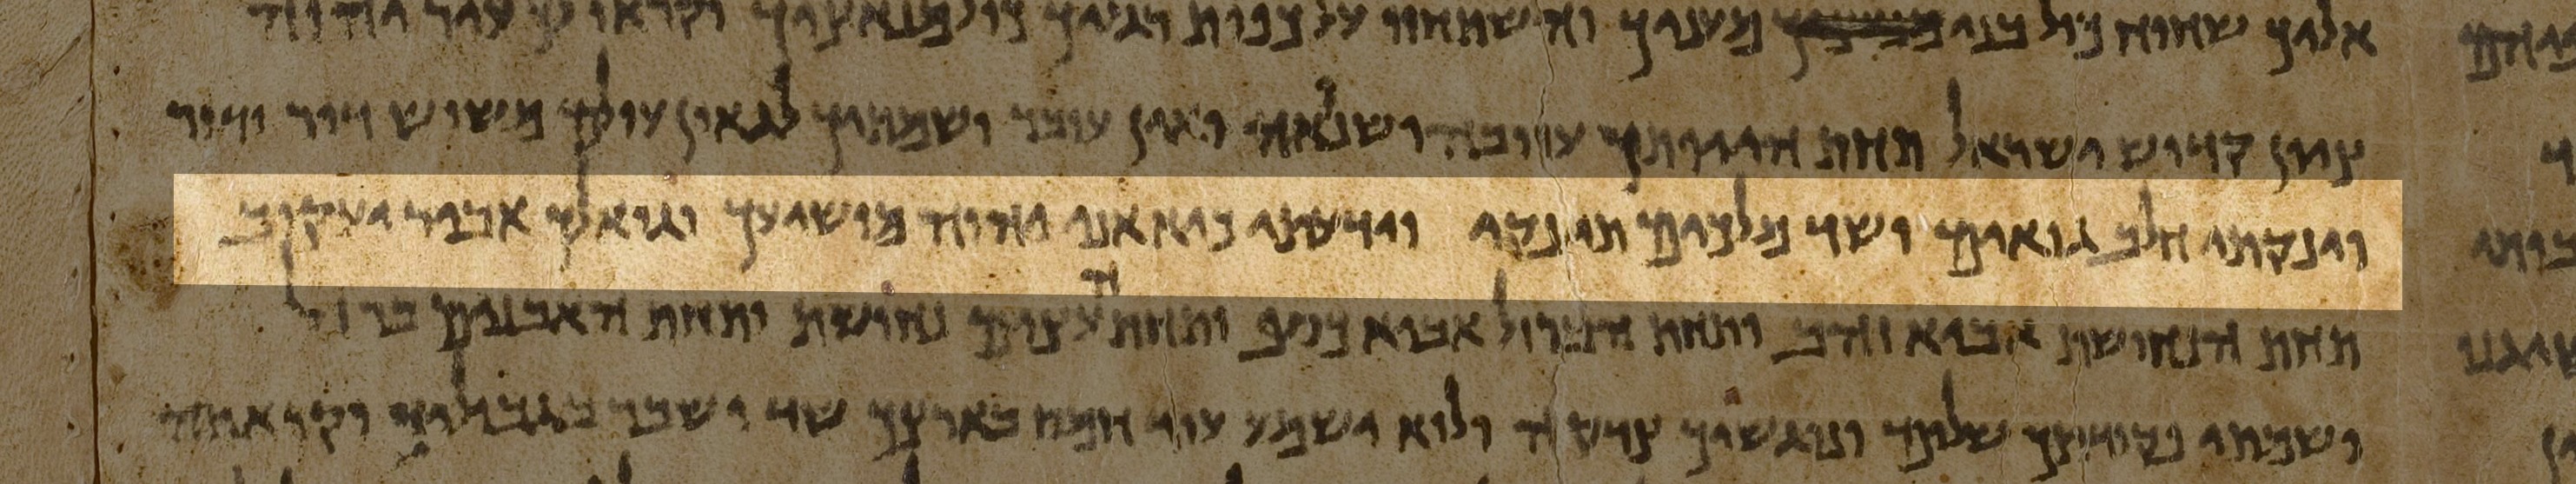 אליך שחוח כול בני מעניך והשתחוו על כפות רגליך כול מנאציך וקראו לך עיר יהוה
ציון קדוש ישראל תחת היותך עזובה ושנאה ואין עובר ושמתיך לגאון עולם משוש דור ודור
וינקתי חלב גואים ושד מלכים תינקי וידעתי כיא אני יהוה מושיעך וגואלך אביר יעקוב
תחת הנחושת אביא זהב ותחת הברזל אביא כסף ותחת העצים נחושת ותחת האבנים ברזל
ושמתי פקודתך שלום ונוגשיך צדקה ולוא ישמע עוד חמס בארצך שד ושבר בגבוליך וקראתה